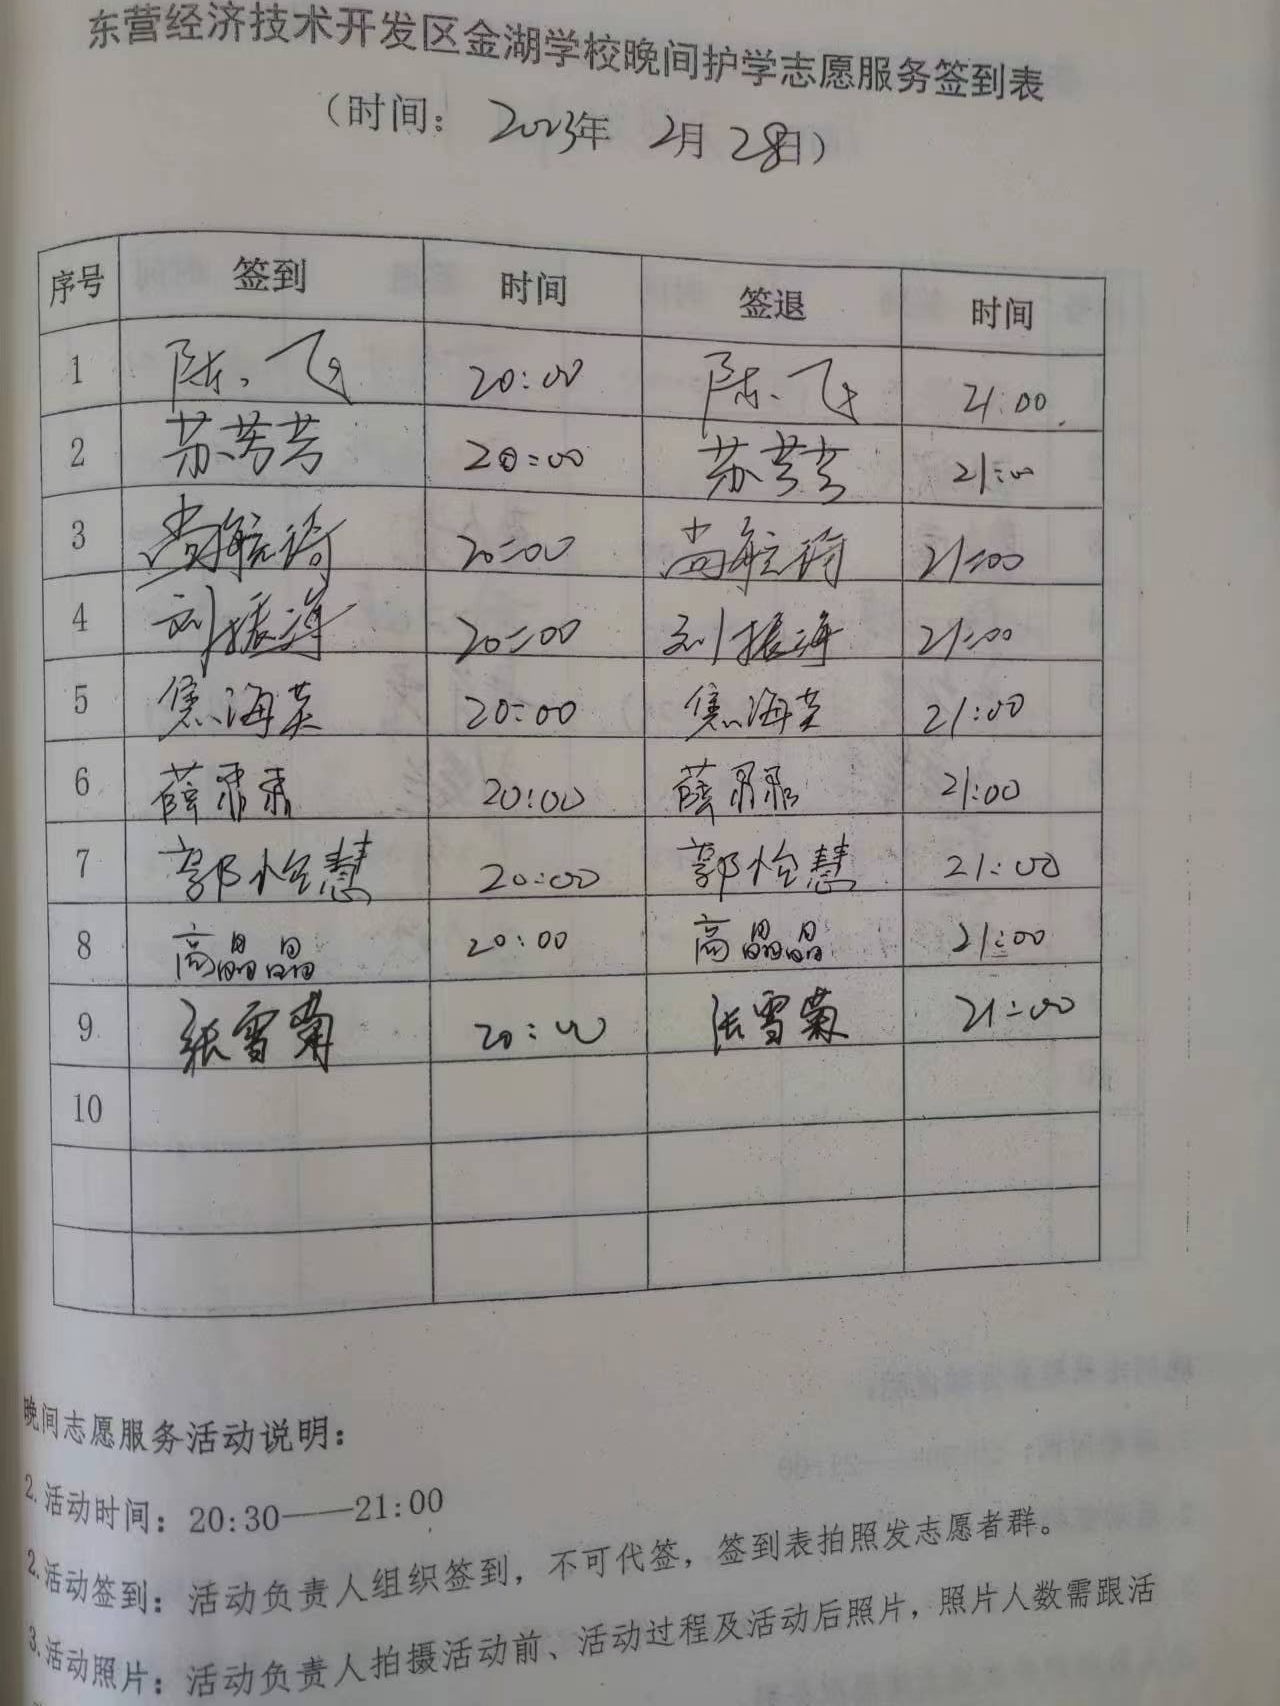 东营经济技术开发区金湖学校晚间护学志愿服务签到表
（时间：2023年 2月 28日）
序号 签到 时间 签退 时间
1 陈飞 20:00 陈飞 21:00
2 苏芳芳 20:00 苏芳芳 21:00
3 尚航琦 20:00 尚航琦 21:00
4 刘振海 20:00 刘振海 21:00
5 焦海英 20:00 焦海英 21:00
6 薛 20:00 薛 21:00
7 郭怡慧 20:00 郭怡慧 21:00
8 高晶晶 20:00 高晶晶 21:00
9 张雪菊 20:00 张雪菊 21:00
10
晚间志愿服务活动说明：
2.活动时间：20:30——21:00
2.活动签到：活动负责人组织签到，不可代签，签到表拍照发志愿者群。
3.活动照片：活动负责人拍摄活动前、活动过程及活动后照片，照片人数需跟活